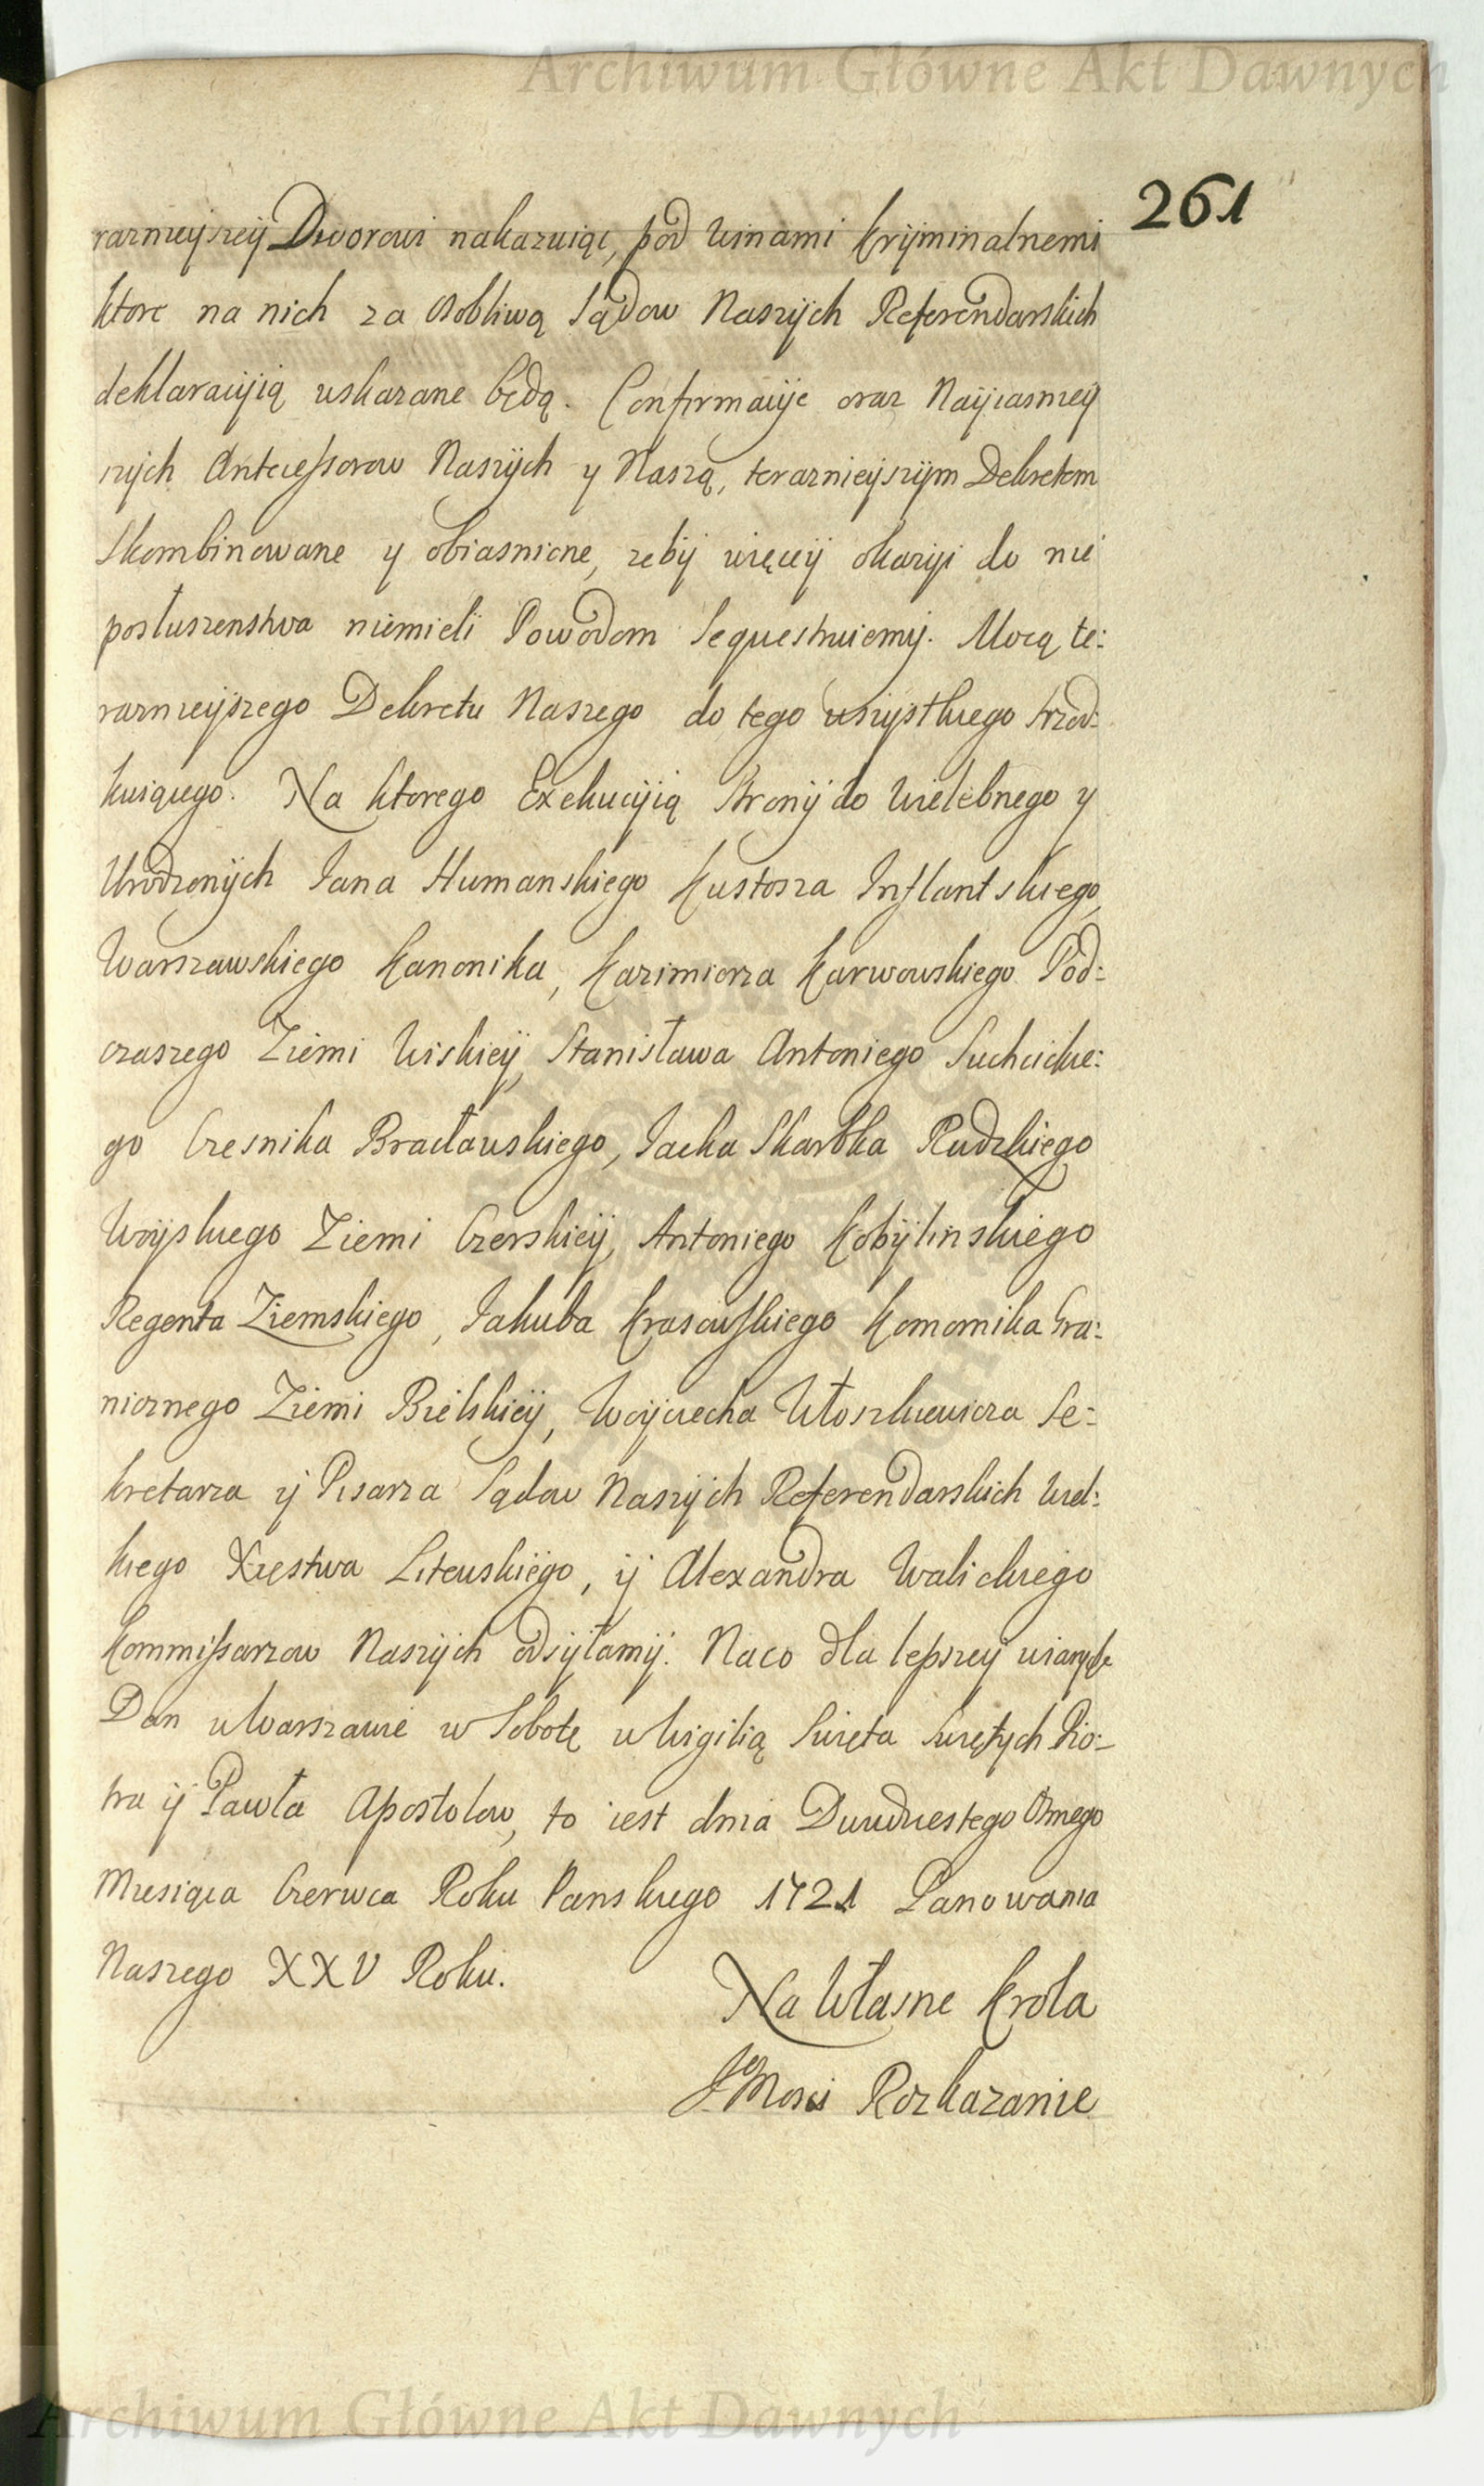 Archiwum Główne Akt Dawnych
261
raznieyszeij Dworowi nakazuiąc, pod winami krijminalnemi
ktore na nich za osobliwą Sądow Naszijch Referendarskich
deklaracijią wskazane będą. Confirmacije oraz Naijiasniey
szijch Antecessorow Naszijch y Naszą, teraznieijszijm Dekretem
Skombinowane y obiasnione, zebij więceij okaziji do nie
posłuszenstwa niemieli Powodom Sequestruiemij. Mocą te:
raznieijszego Dekretu Naszego do tego wszijstkiego srzod:
kuiącego. Na ktorego Exekucijią Stronij do Wielebnego y
Urodzonijch Jana Humanskiego Kustosza Inflantskiego,
Warszawskiego Kanonika, Kazimierza Karwowskiego Pod:
czaszego Ziemi Wiskieij, Stanisława Antoniego Suchcickie:
go Czesnika Bracławskiego, Jacka Skarbka Rudzkiego
Woijskiego Ziemi Czerskieij, Antoniego Kobijlinskiego
Regenta Ziemskiego, Jakuba Krasowskiego Komornika Gra:
nicznego Ziemi Bielskieij, Woijciecha Włoszkiewicza Se:
kretarza ij Pisarza Sądow Naszijch Referendarskich Wiel:
kiego Xięstwa Litewskiego, ij Alexandra Walickiego
Kommissarzow Naszijch odsijłamij. Naco dla lepszeij wiarij
Dan w Warszawie w Sobotę w Wigilią Swięta Swiętych Pio:
tra ij Pawła Apostolow, to iest dnia Dwudziestego Osmego
Miesiąca Czerwca Roku Panskiego 1721 Panowania
Naszego XXV Roku.
Na Własne Krola
JeMosci Rozkazanie
Archiwum Główne Akt Dawnych